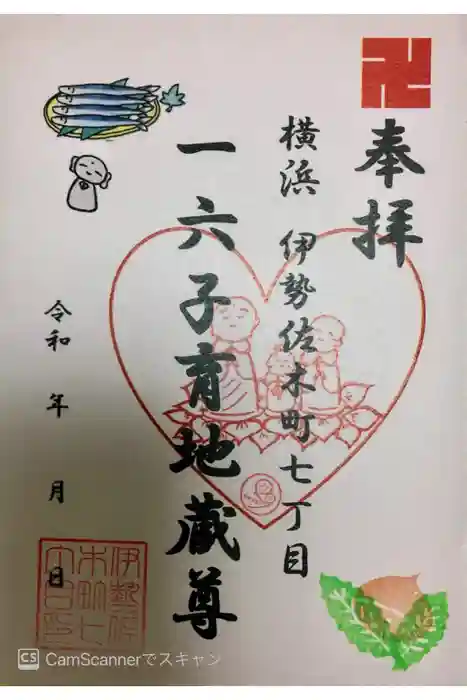 奉拝
横浜 伊勢佐木町七丁目
一六子育地蔵尊
令和 年 月 日
CS CamScannerでスキャン